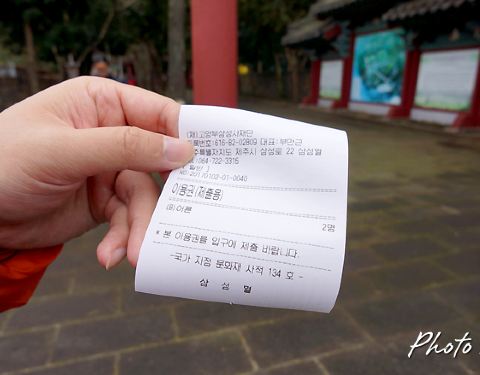 (재)고양부삼성사재단
등록번호:616-82-02809 대표:부만근
주특별자치도 제주시 삼성로 22 삼성혈
064-722-3315
NO:20170102-01-0040
이용권(제출용)
어른 2명
* 본 이용권을 입구에 제출 바랍니다.
-국가 지정 문화재 사적 134 호 -
삼 성 혈
Photo